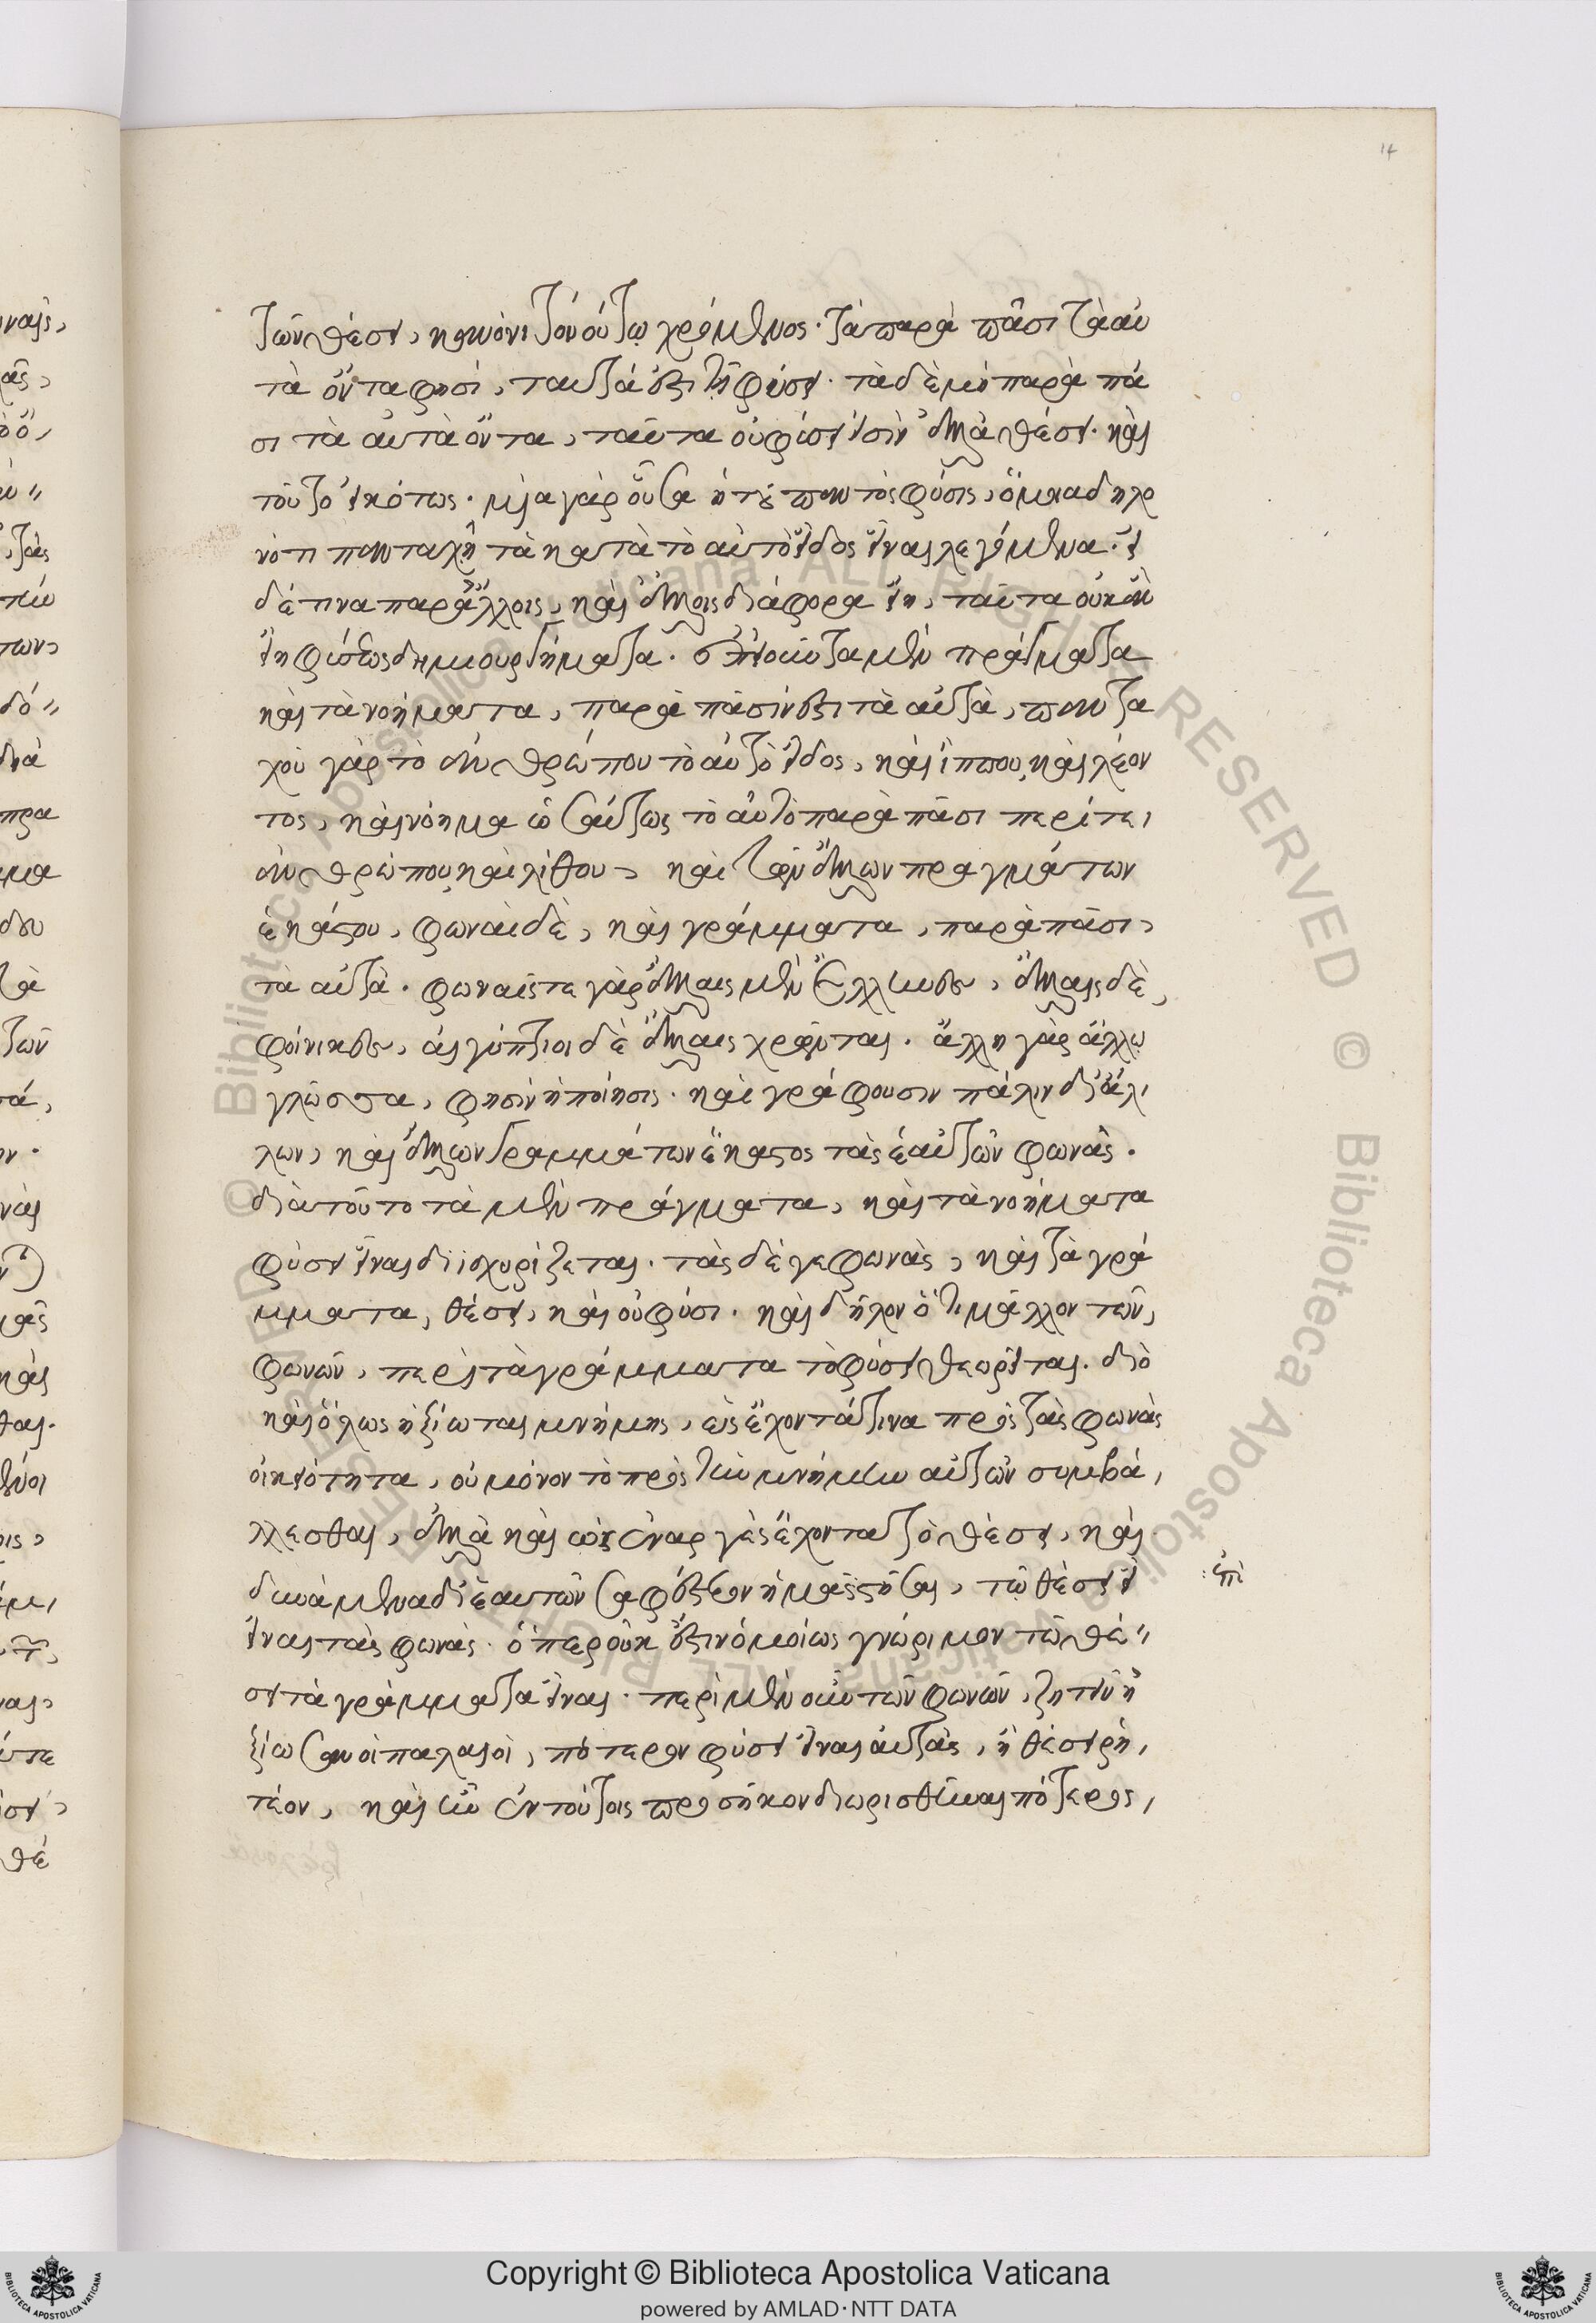 14
τῶν θέσει, κανόνι τοιούτω χρώμενος. τὰ παρὰ πᾶσι τὰ αὐ
τὰ ὄντα φησὶ, ταῦτά ἐστι τῇ φύσει. τὰ δὲ μὴ παρὰ πᾶ
σι τὰ αὐτὰ ὄντα, ταῦτα οὐ φύσει εἰσὶν ἀλλὰ θέσει. καὶ
τοῦτο εἰκότως. μία γὰρ οὖσα ἡ τοῦ παντὸς φύσις,
νότι πανταχῆ τὰ κατὰ τὸ αὐτὸ εἶδος εἶναι λεγόμενα. εἰ
δέ τινα παρ' ἄλλοις, καὶ ἄλλοις διάφορα εἴη, ταῦτα οὐκ ἂν
εἴη φύσεως δημιουργήματα. ἐπεὶ οὖν τὰ μὲν πράγματα
καὶ τὰ νοήματα, παρὰ πᾶσίν ἐστι τὰ αὐτὰ, παντα
χοῦ γὰρ τὸ ἀνθρώπου τὸ αὐτὸ εἶδος, καὶ ἵππου, καὶ λέον
τος, καὶ νόημα ὡσαύτως τὸ αὐτὸ παρὰ πᾶσι περί τε,
ἀνθρώπου, καὶ λίθου, καὶ τῶν ἄλλων πραγμάτων
ἑκάστου, φωναὶ δὲ, καὶ γράμματα, παρὰ πᾶσι,
τὰ αὐτὰ. φωναῖς τε γὰρ ἄλλαις μὲν Ἕλληνες, ἄλλαις δὲ,
φοίνικες, αἰγύπτιοι δὲ ἄλλαις χρῶνται. ἄλλη γὰρ ἄλλω
γλῶσσα, φησὶν ἡ ποίησις. καὶ γράφουσιν πάλιν δι' ἄλ
λων, καὶ ἄλλων γραμμάτων ἕκαστος τὰς ἑαυτῶν φωνάς.
διὰ τοῦτο τὰ μὲν πράγματα, καὶ τὰ νοήματα
φύσει εἶναι διισχυρίζεται. τὰς δέ γε φωνὰς, καὶ τὰ γρά
μματα, θέσει, καὶ οὐ φύσι. καὶ δῆλον ὅτι μᾶλλον τῶν,
φωνῶν, περὶ τὰ γράμματα τὸ φύσει θεωρεῖται. διὸ
καὶ ὅλως ἠξίωται μνήμης, εἰς ἔχοντά τινα πρὸς τὰς φωνὰς
οἰκειότητα, οὐ μόνον τὸ πρὸς τὴν μνήμην αὐτῶν συμβά,
λλεσθαι, ἀλλὰ καὶ ὡς ἐναργὲς ἔχοντα τὸ θέσει, καὶ
δυνάμενα δι' ἑαυτῶν σαφέστερον ἡμᾶς στῆσαι, τῶ θέσει
εἶναι τὰς φωνὰς. ὅπερ οὐκ ἔστιν ὁμοίως γνώριμον τῶ θέ
σει τὰ γράμματα εἶναι. περὶ μὲν οὖν τῶν φωνῶν, ζητεῖν ἠ
ξίωσαν οἱ παλαιοὶ, πότερον φύσει εἶναι αὐτὰς, ἢ θέσει ῥη,
τέον, καὶ ἦν ἐν τούτοις προσῆκον διορισθῆναι πότερος,
ἐπὶ
Copyright © Biblioteca Apostolica Vaticana
powered by AMLAD·NTT DATA